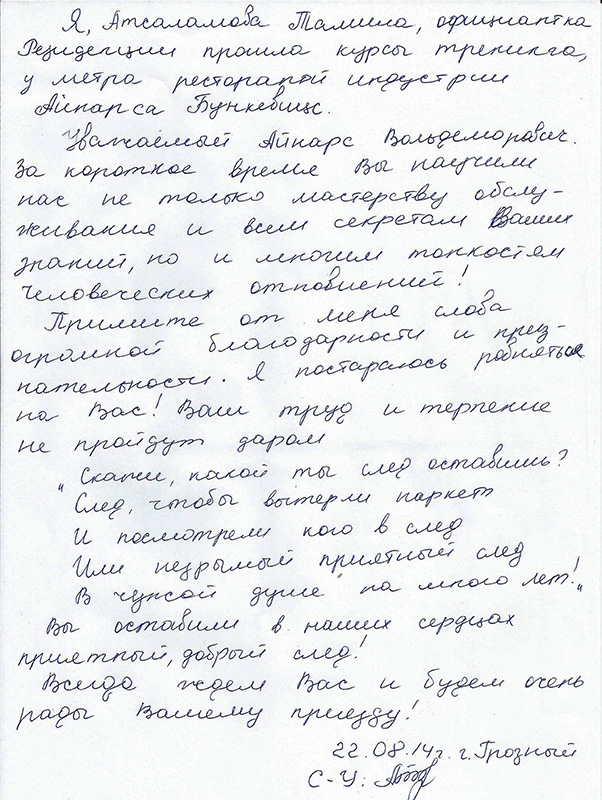 Я, Атсаламова Тамила, официантка
Резиденции прошла курсы тренинга,
у метра ресторанной индустрии
Айнарса Бункевицс.
Уважаемый Айнарс Вольдемарович.
За короткое время Вы научили
нас не только мастерству обслу-
живания и всем секретам Ваших
знаний, но и многим тонкостям
человеческих отношений!
Примите от меня слова
огромной благодарности и приз-
нательности. Я постараюсь равняться
на Вас! Ваш труд и терпение
не пройдут даром
„Скажи, какой ты след оставишь?
След, чтобы вытерли паркет
И посмотрели косо в след
Или незримый приятный след
В чужой душе на много лет!„
Вы оставили в наших сердцах
приятный, добрый след!
Всегда ждем Вас и будем очень
рады Вашему приезду!
22.08.14г. г. Грозный
С-У: